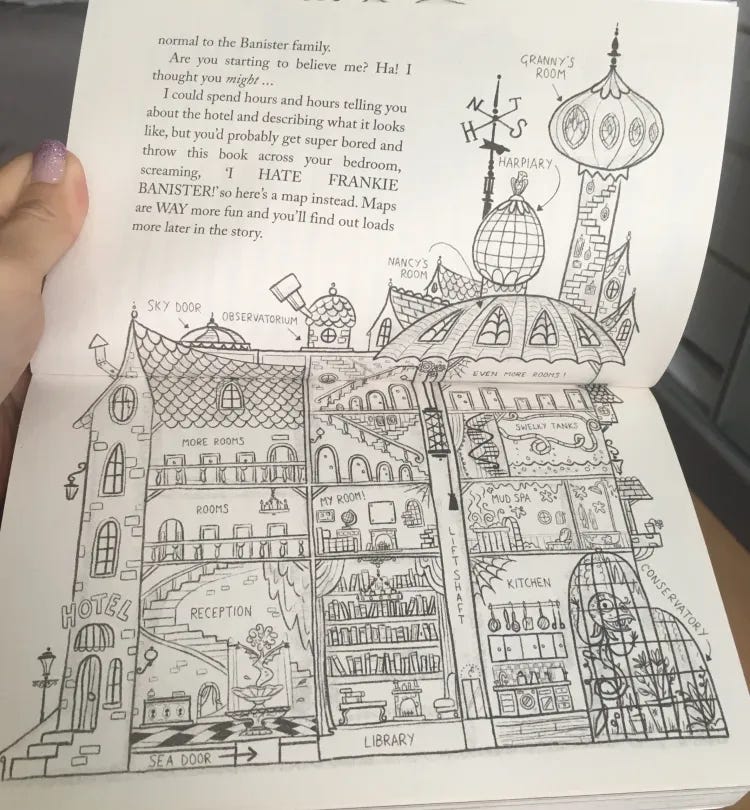 normal to the Banister family.
Are you starting to believe me? Ha! I
thought you might ...
I could spend hours and hours telling you
about the hotel and describing what it looks
like, but you'd probably get super bored and
throw this book across your bedroom,
screaming, 'I HATE FRANKIE
BANISTER!' so here's a map instead. Maps
are WAY more fun and you'll find out loads
more later in the story.
GRANNY'S
ROOM
N
J
H
S
HARPIARY
NANCY'S
ROOM
SKY DOOR
OBSERVATORIUM
EVEN MORE ROOMS!
MORE ROOMS
SWELKY TANKS
ROOMS
MY ROOM!
MUD SPA
LIFT SHAFT
HOTEL
RECEPTION
KITCHEN
CONSERVATORY
LIBRARY
SEA DOOR